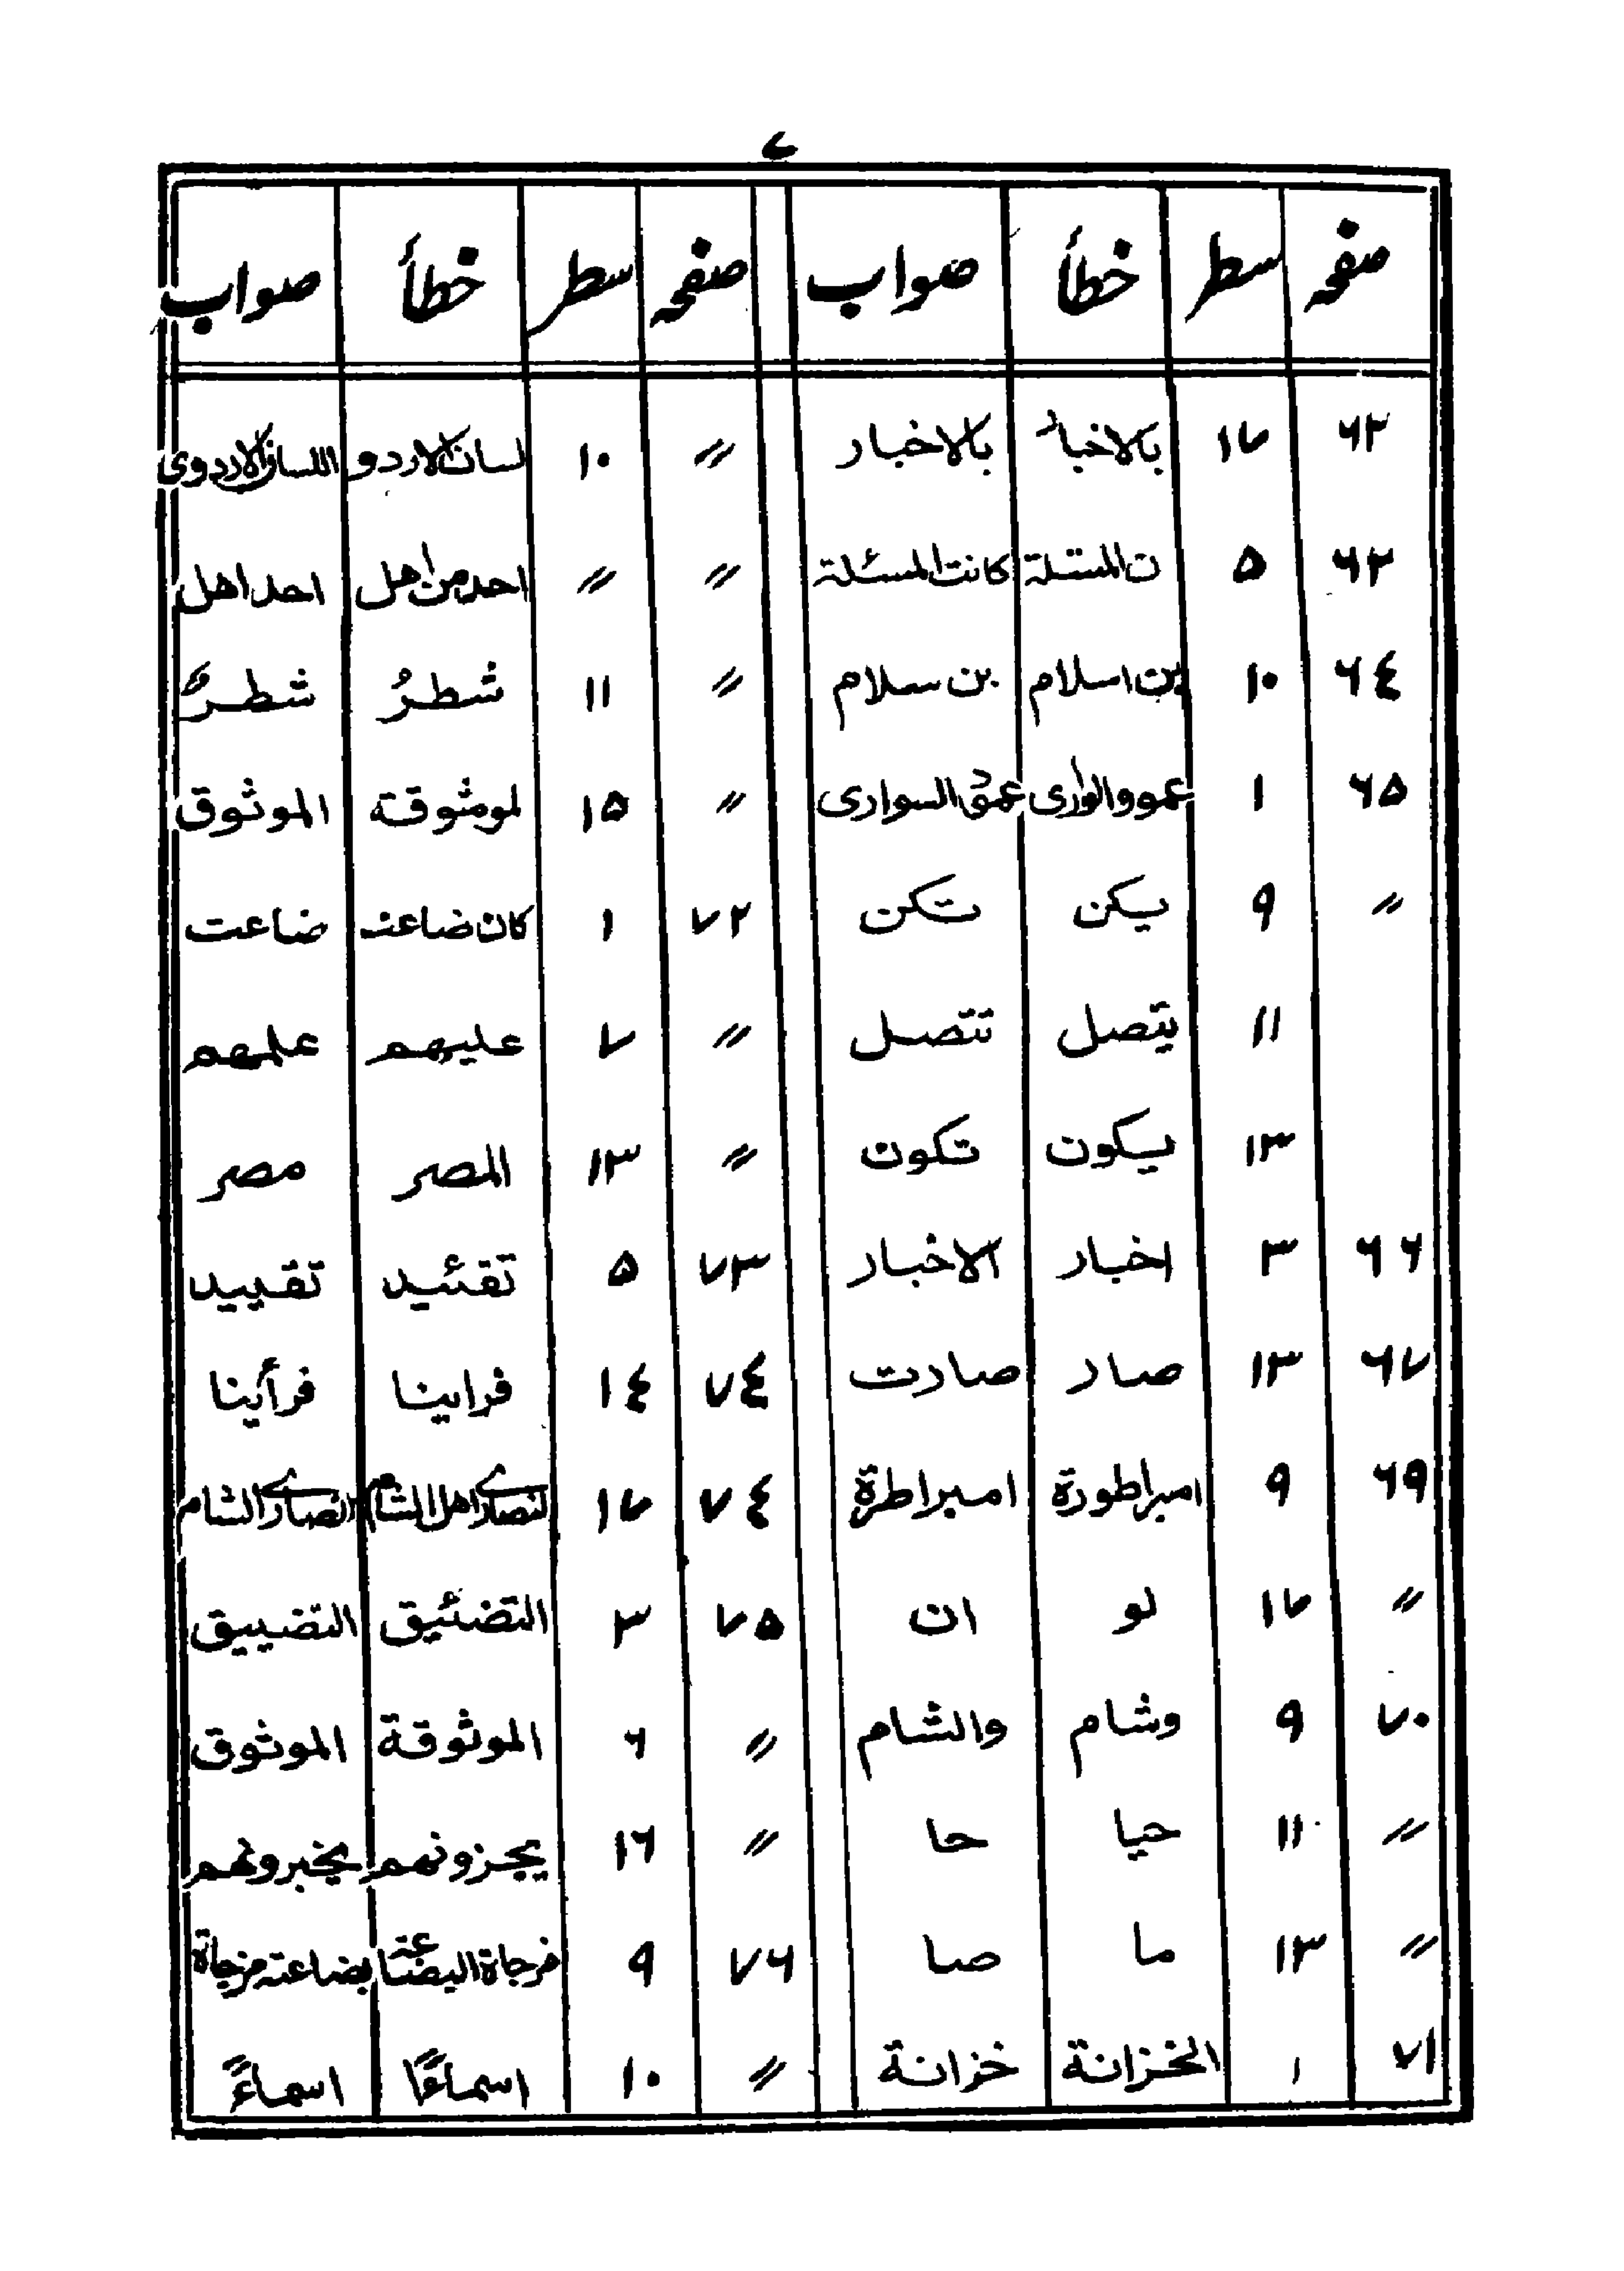 ٧
صفحه سطر خطأ صواب صفحه سطر خطأ صواب
٦٢ ١٧ بالاخبا بالاخبار 〃 ١٠ لسان الاردو اللسان الاردوی
٦٢ ٥ ن المسئلة كانت المسئلة 〃 〃 احد من اهل احد اهل
٦٤ ١٠ بن اسلام بن سلام 〃 ١١ شطرُ شطرٌ
٦٥ ١ السواری 〃 ١٥ لموثوقة الموثوق
〃 ٩ يكن تكن ٧٢ ١ كان ضاعت ضاعت
١١ يتصل تتصل 〃 ٧ عليهم علمهم
١٣ يكون تكون 〃 ١٣ المصر مصر
٦٦ ٣ اخبار الاخبار ٧٣ ٥ تقئيد تقييد
٦٧ ١٣ صار صارت ٧٤ ١٤ فراينا فرأينا
٦٩ ٩ امبراطورة امبراطرة ٧٤ ١٧ اهل الشام الشام
〃 ١٧ لو ان ٧٥ ٣ التضئيق التضييق
٧٠ ٩ وشام والشام 〃 ٦ الموثوقة الموثوق
〃 ١١ حيا حا 〃 ١٦ يجزونهم يخبرونهم
〃 ١٣ ما صا ٧٦ ٩ بضاعة مزجاة
٧١ ١ الخزانة خزانة 〃 ١٠ اسماءًا اسماءً